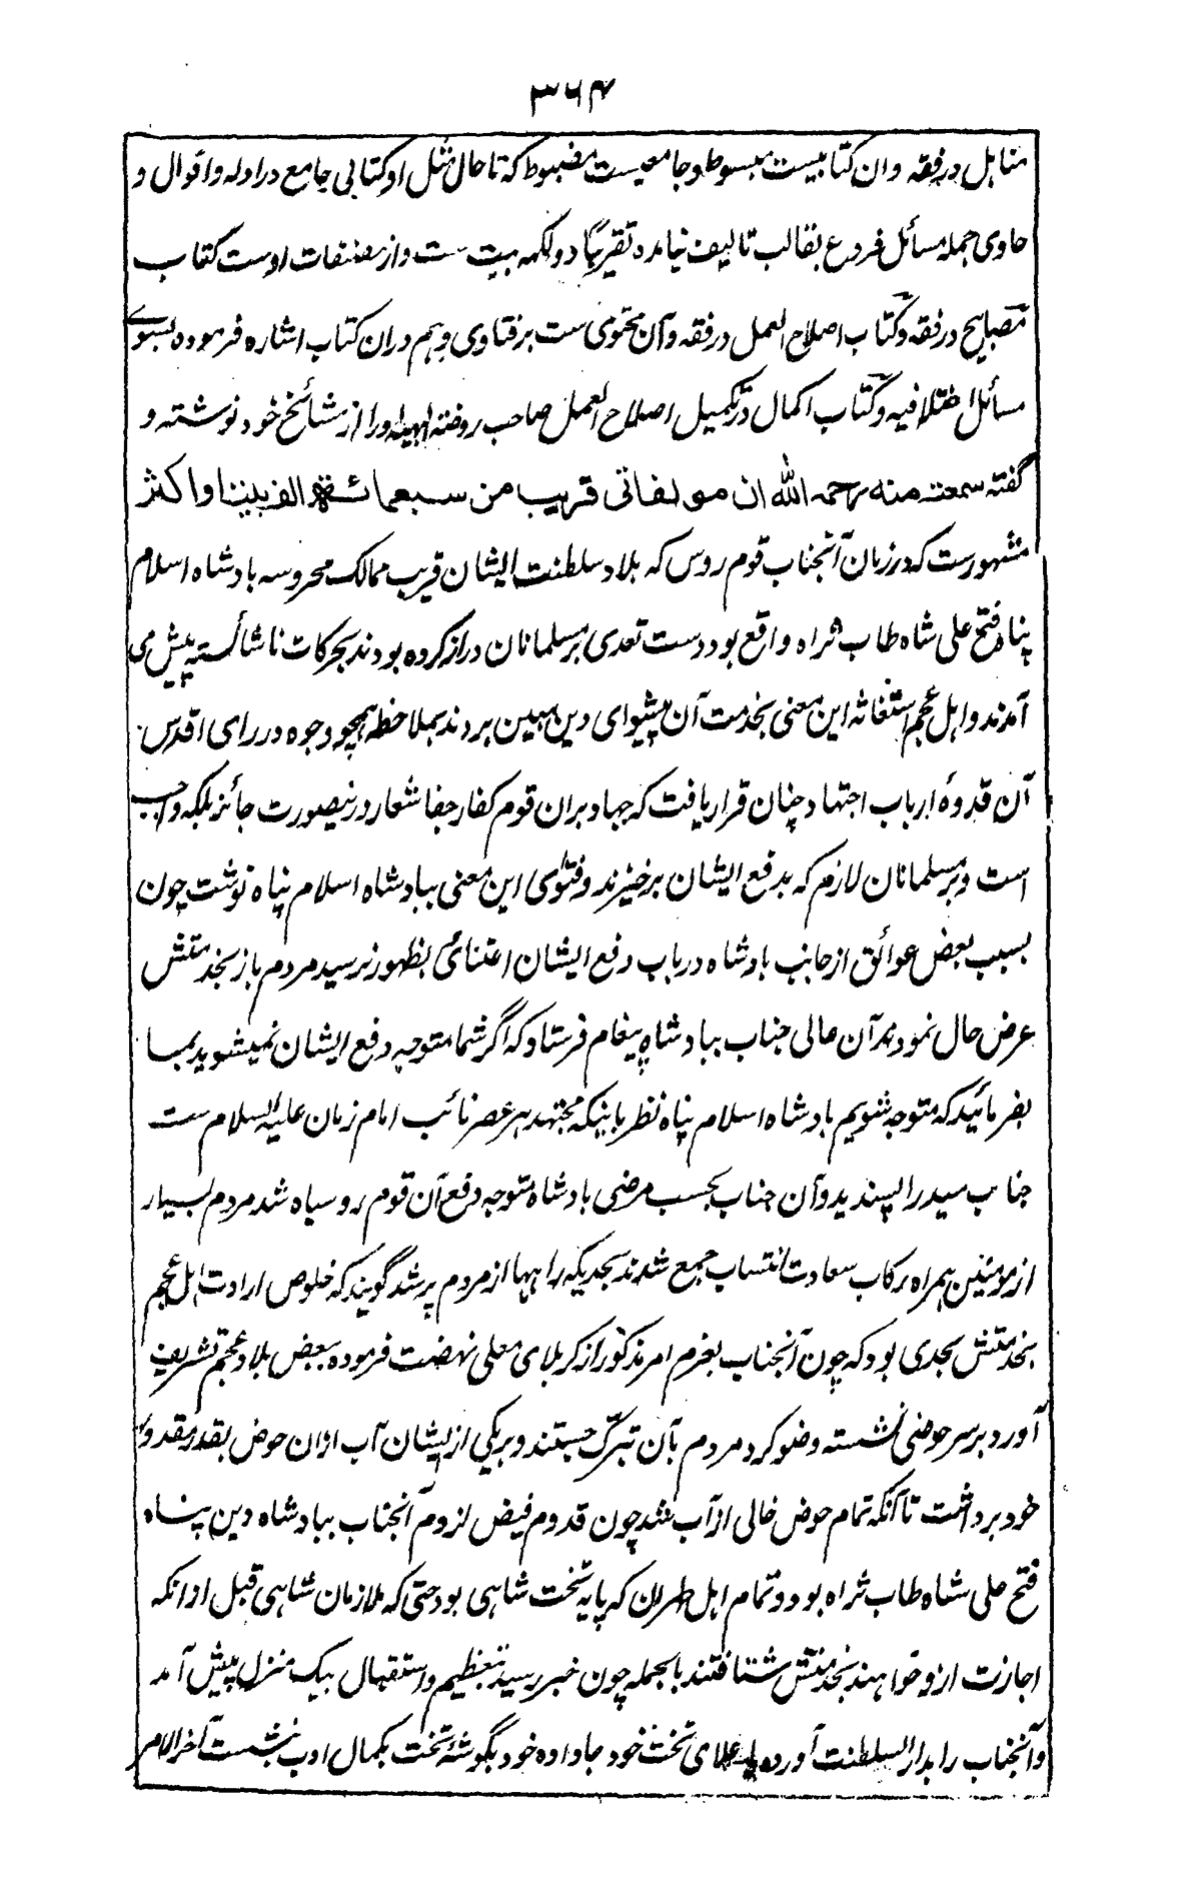 ۳۶۴
مناہل در فقہ و ان کتابیست مبسوط و جامعیست مضبوط کہ تا حال مثل او کتابی جامع در ادلہ و اقوال و
حاوی جملہ مسائل فروع بقالب تالیف نیامدہ تقریبًا دو لکہہ بیت ست و از مصنفات اوست کتاب
مصابیح در فقہ و کتاب اصلاح العمل در فقہ و آن محتوی ست بر فتاوی و ہم دران کتاب اشارہ فرمودہ بسوے
مسائل اختلافیہ و کتاب اکمال در تکمیل اصلاح العمل صاحب روضۃ البہیہ اورا از مشائخ خود نوشتہ و
گفتہ سمعت منہ رحمہ اللہ ان مولفاتی قریب من سبعمائۃ الف بیت او اکثر
مشہورست کہ در زمان آنجناب قوم روس کہ بلاد سلطنت ایشان قریب ممالک محروسہ بادشاہ اسلام
پناہ فتح علی شاہ طاب ثراہ واقع بود دست تعدی بر مسلمانان دراز کردہ بودند بحرکات ناشائستہ پیش می
آمدند و اہل عجم استغاثہ این معنی بخدمت آن پیشوای دین مبین بردند بملاحظہ ہمچو وجوہ در رای اقدس
آن قدوۂ ارباب اجتہاد چنان قرار یافت کہ جہاد بران قوم کفار جفا شعار درینصورت جائز بلکہ واجب
است و بر مسلمانان لازم کہ بدفع ایشان برخیزند و فتوی این معنی ببادشاہ اسلام پناہ نوشت چون
بسبب بعض عوائق از جانب بادشاہ در باب دفع ایشان اعتنائی بظہور نرسید مردم باز بخدمتش
عرض حال نمودند آن عالی جناب ببادشاہ پیغام فرستاد کہ اگر شما متوجہ دفع ایشان نمیشوید بما
بفرمائید کہ متوجہ شویم بادشاہ اسلام پناہ نظر باینکہ مجتہد ہر عصر نائب امام زمان علیہ السلام ست
جناب سید را پسندید و آن جناب بحسب مرضی بادشاہ متوجہ دفع آن قوم رو سیاہ شد مردم بسیار
از مومنین ہمراہ رکاب سعادت انتساب جمع شدند بحدیکہ راہہا از مردم پر شد گویند کہ خلوص ارادت اہل عجم
بخدمتش بحدی بود کہ چون آنجناب بعزم امر مذکور از کربلای معلی نہضت فرمودہ ببعض بلاد عجم تشریف
آورد بر سر حوضی نشستہ وضو کرد مردم بآن تبرک جستند و ہر یکی از ایشان آب ازان حوض بقدر مقدور
خود برداشت تا آنکہ تمام حوض خالی از آب شد چون قدوم فیض لزوم آنجناب ببادشاہ دین پناہ
فتح علی شاہ طاب ثراہ بود و تمام اہل طہران کہ پایہ تخت شاہی بود حتی کہ ملازمان شاہی قبل ازانکہ
اجازت ازو خواہند بخدمتش شتافتند بالجملہ چون خبر رسید بتعظیم و استقبال بیک منزل پیش آمد
و آنجناب را بدار السلطنت آوردہ بر اعلای تخت خود جا دادہ خود بگوشۂ تخت بکمال ادب نشست آخر الامر